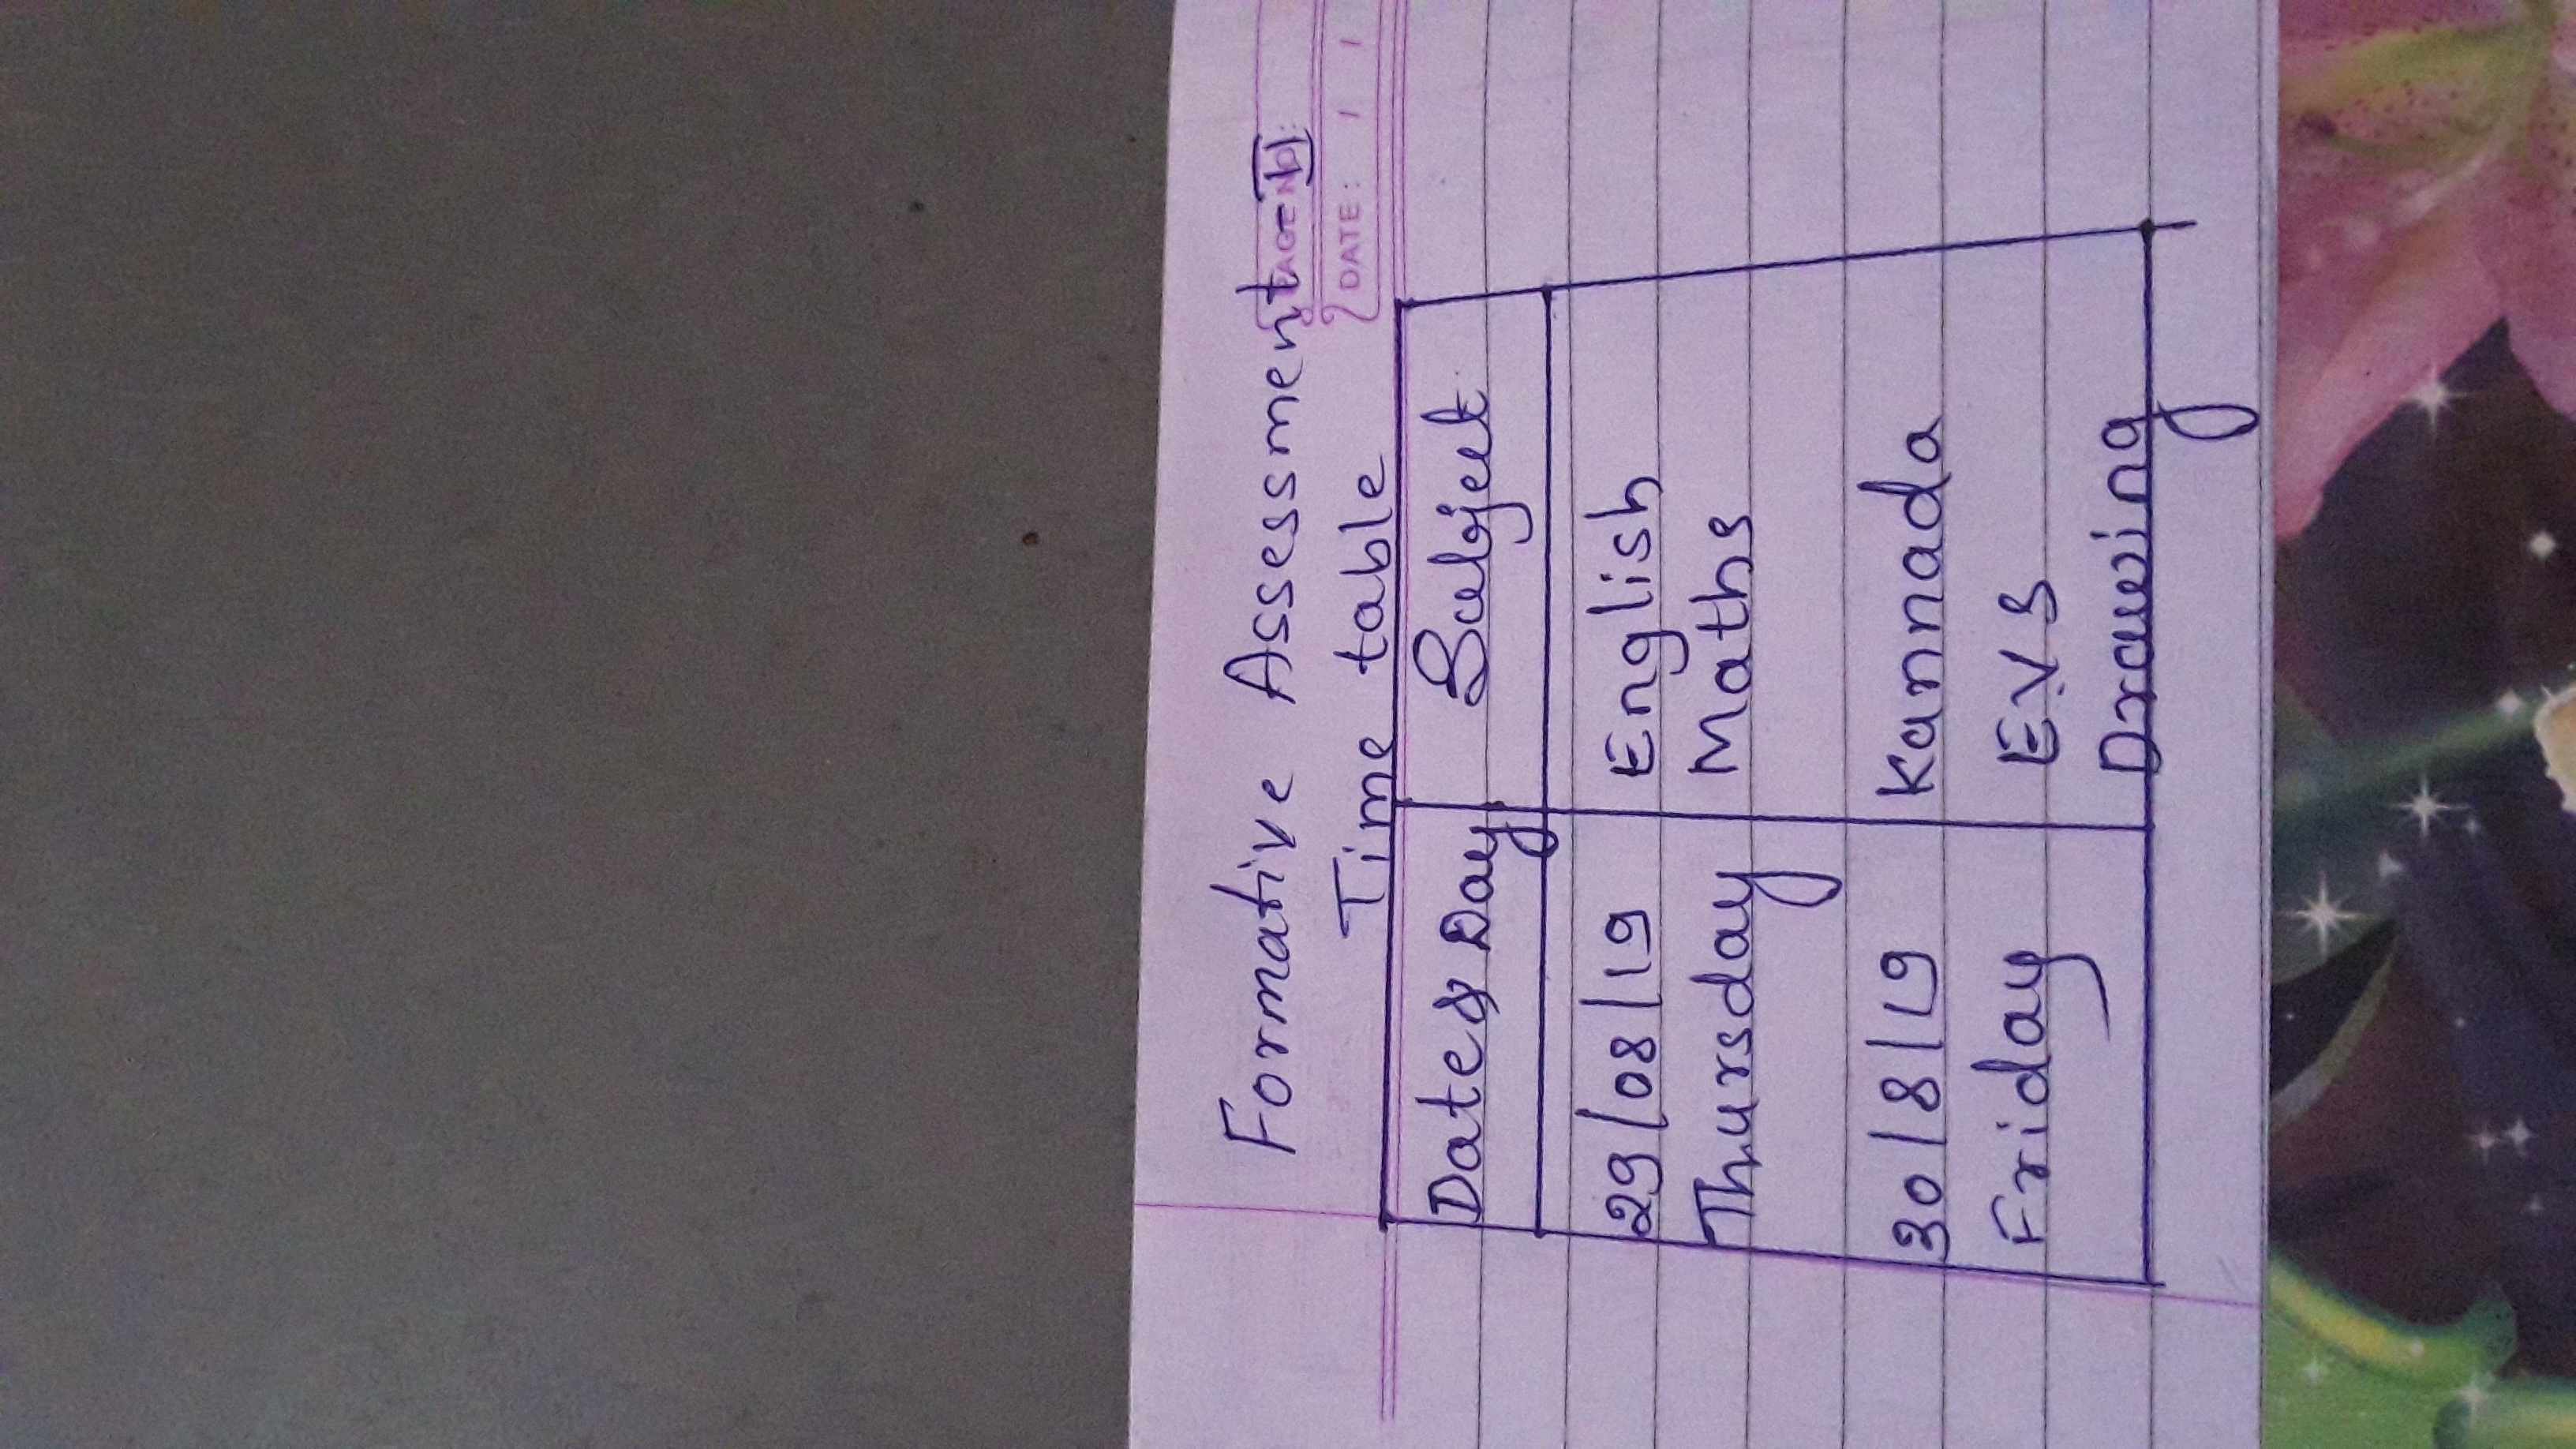 Formative Assessment-1
PAGE NO:
DATE: / /
Time table
Date & Day Subject
29/08/19 English
Thursday Maths
30/8/19 Kannada
Friday E.V.S
Drawing